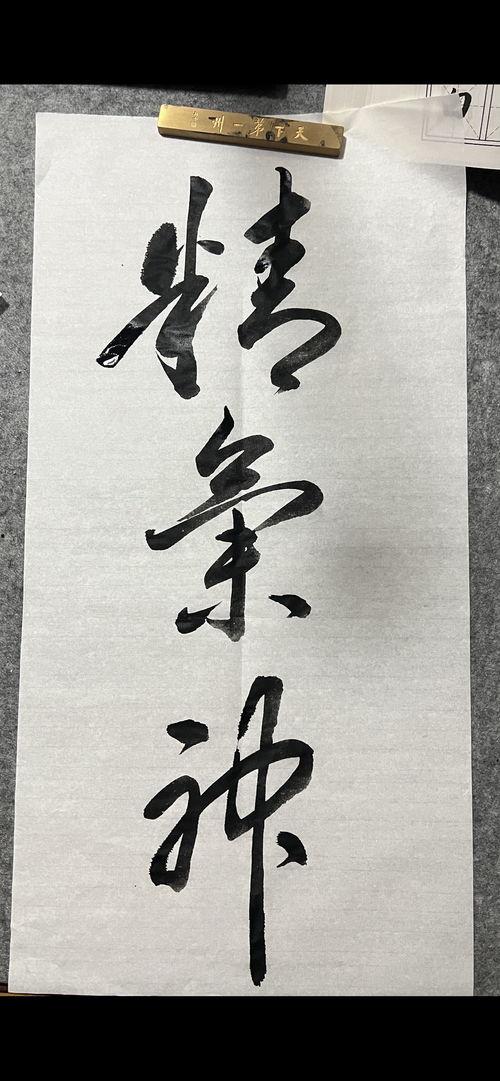 州一第下天
精氣神